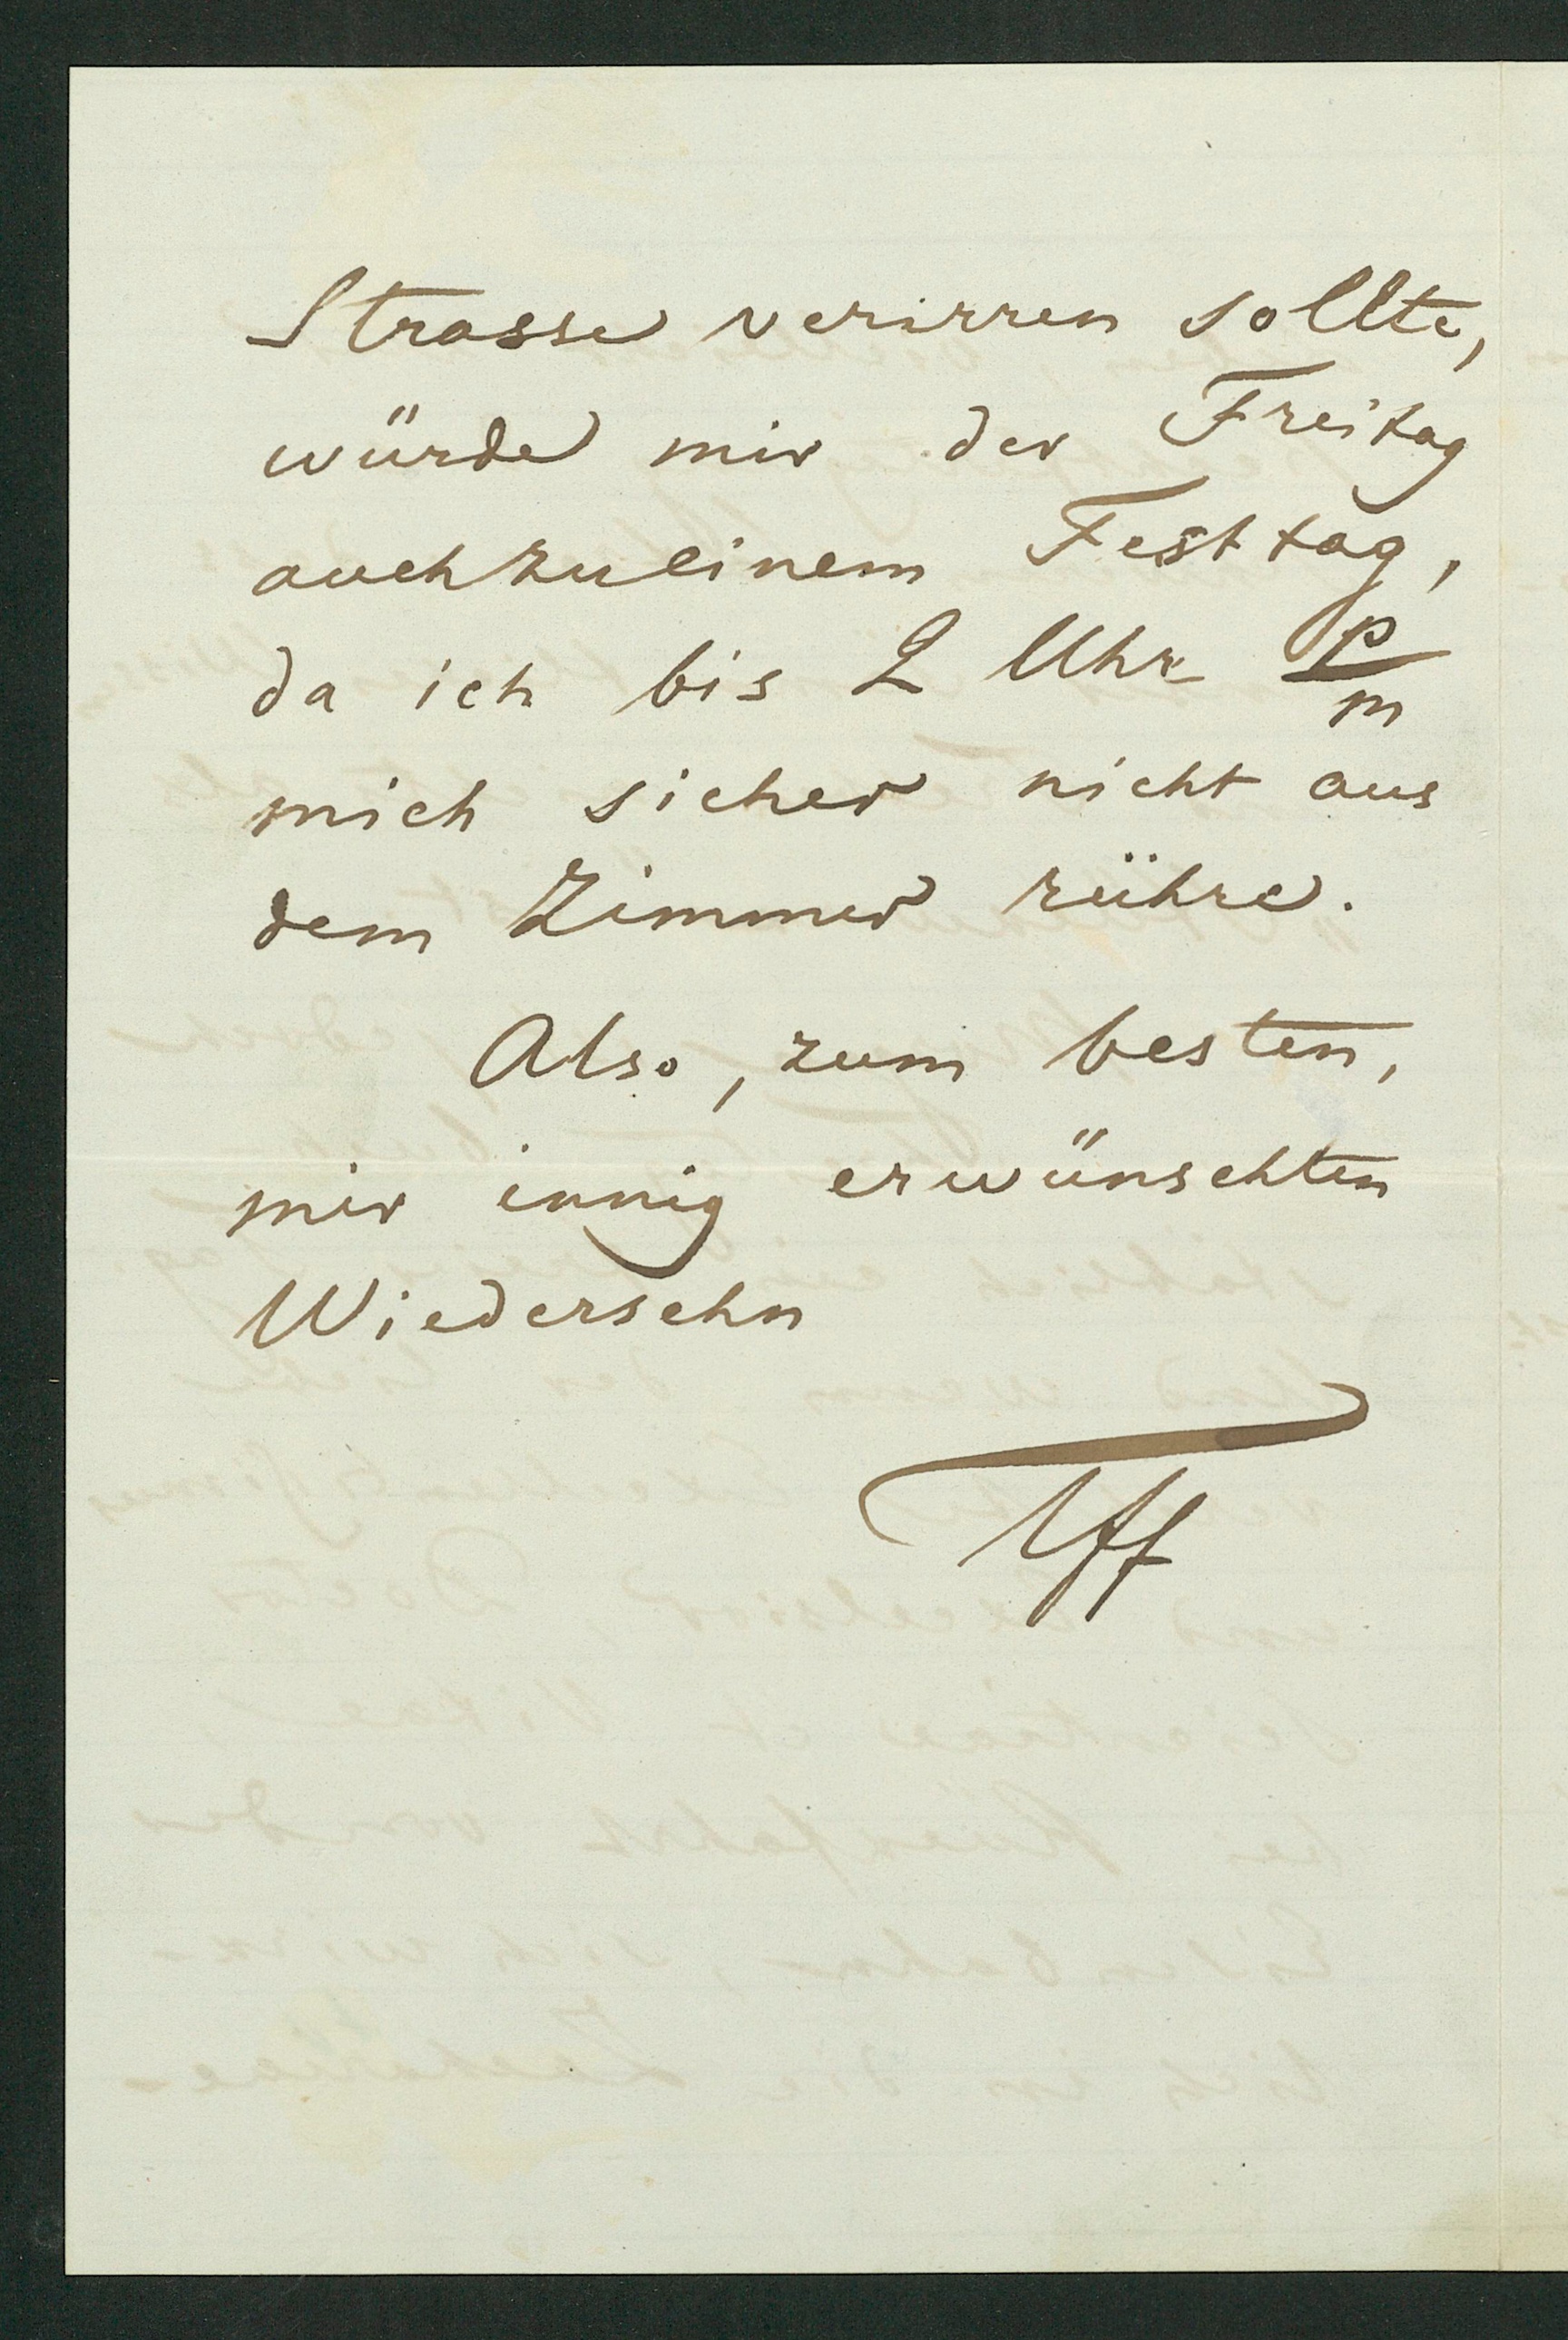 Strasse verirren sollte,
würde mir der Freitag
auch zu einem Festtag,
da ich bis 2 Uhr p/m
mich sicher nicht aus
dem Zimmer rühre.
Also, zum besten,
mir innig erwünschten
Wiedersehn